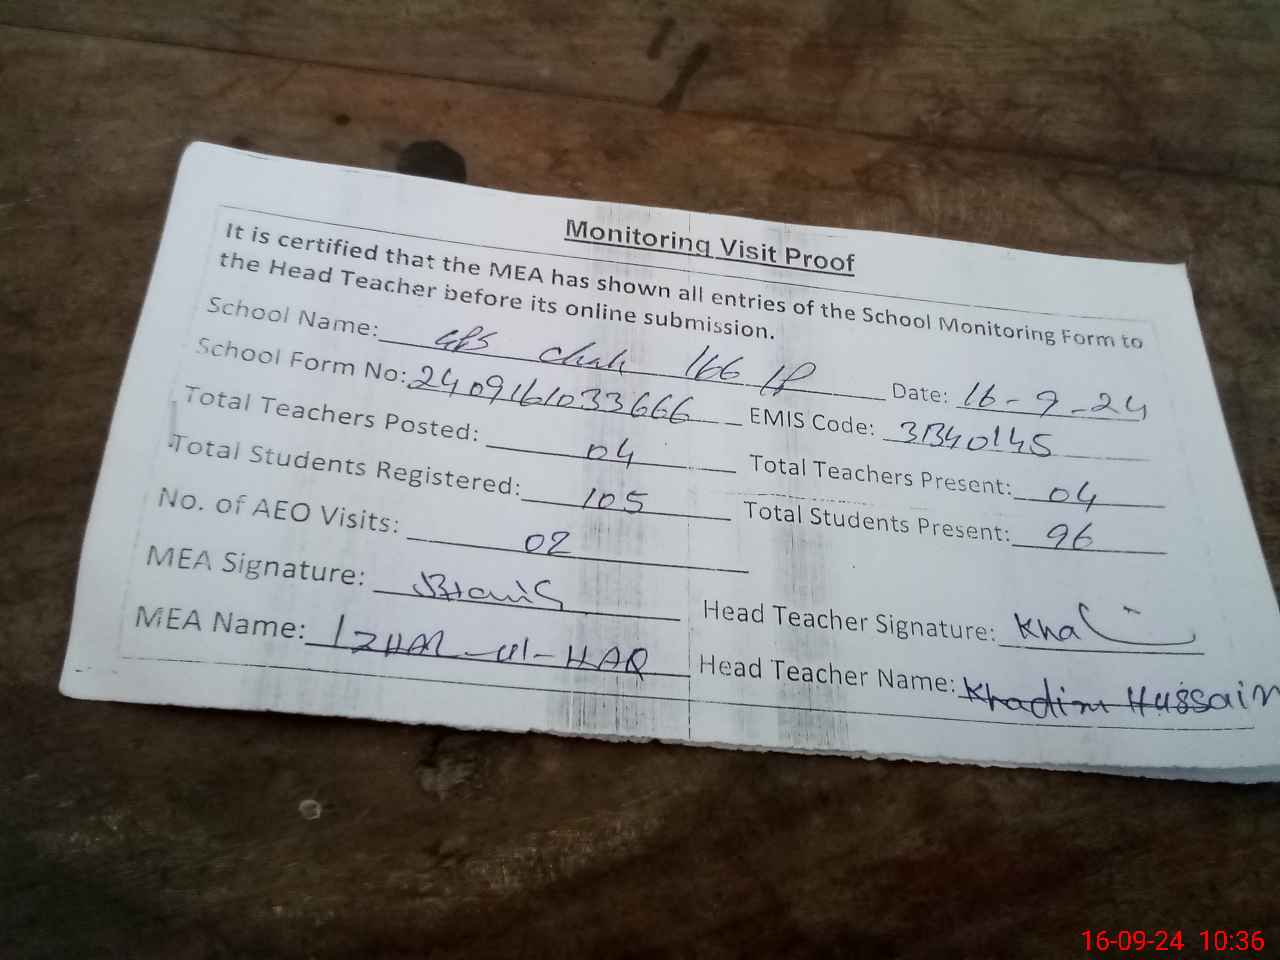 Monitoring Visit Proof
It is certified that the MEA has shown all entries of the School Monitoring Form to
the Head Teacher before its online submission.
School Name: GPS Chak 166 1P Date: 16-9-24
School Form No: 2409161033666 EMIS Code: 31340145
Total Teachers Posted: 04 Total Teachers Present: 04
Total Students Registered: 105 Total Students Present: 96
No. of AEO Visits: 02
MEA Signature: Head Teacher Signature: Kha
MEA Name: IZHAR-ul-HAQ Head Teacher Name: Khadim Hussain
16-09-24 10:36